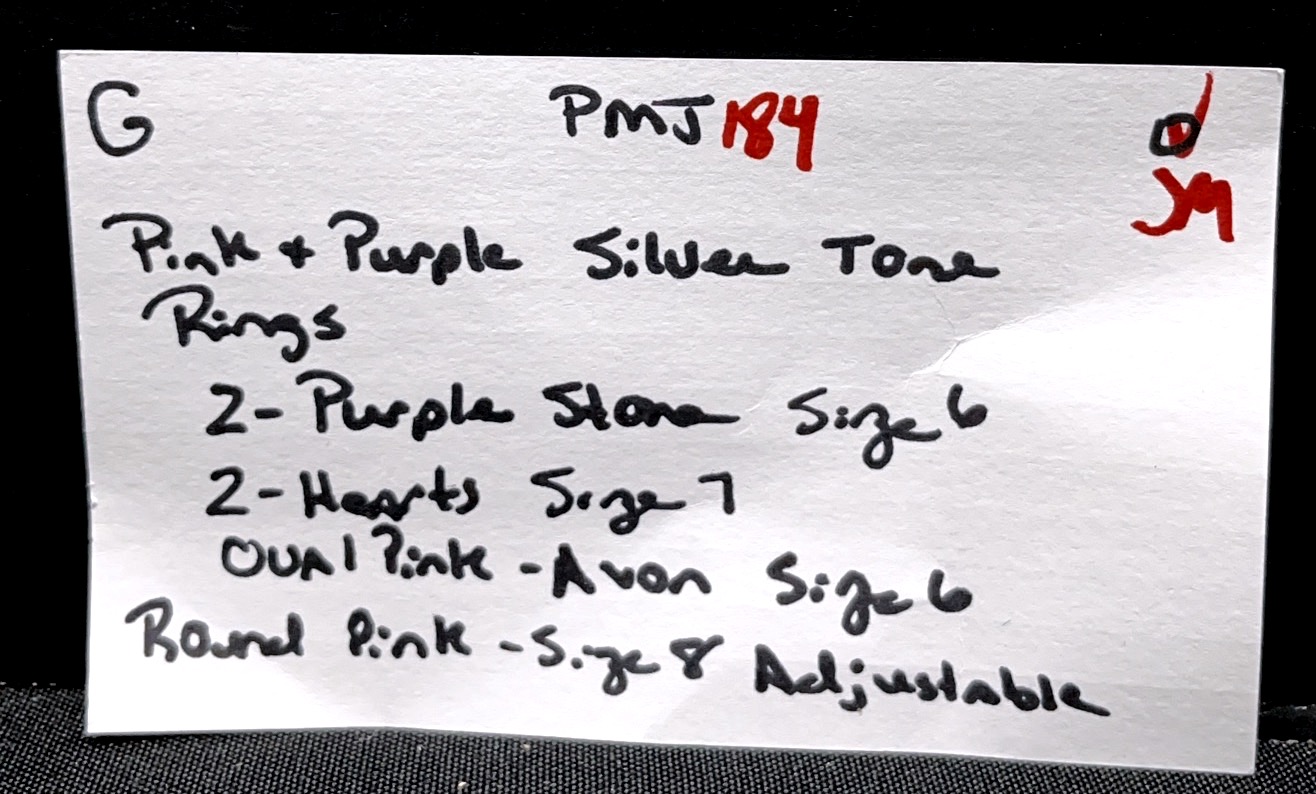 G PMJ 184
JM
Pink + Purple Silver Tone
Rings
2- Purple Stone Size 6
2- Hearts Size 7
Oval Pink - Avon Size 6
Round Pink - Size 8 Adjustable